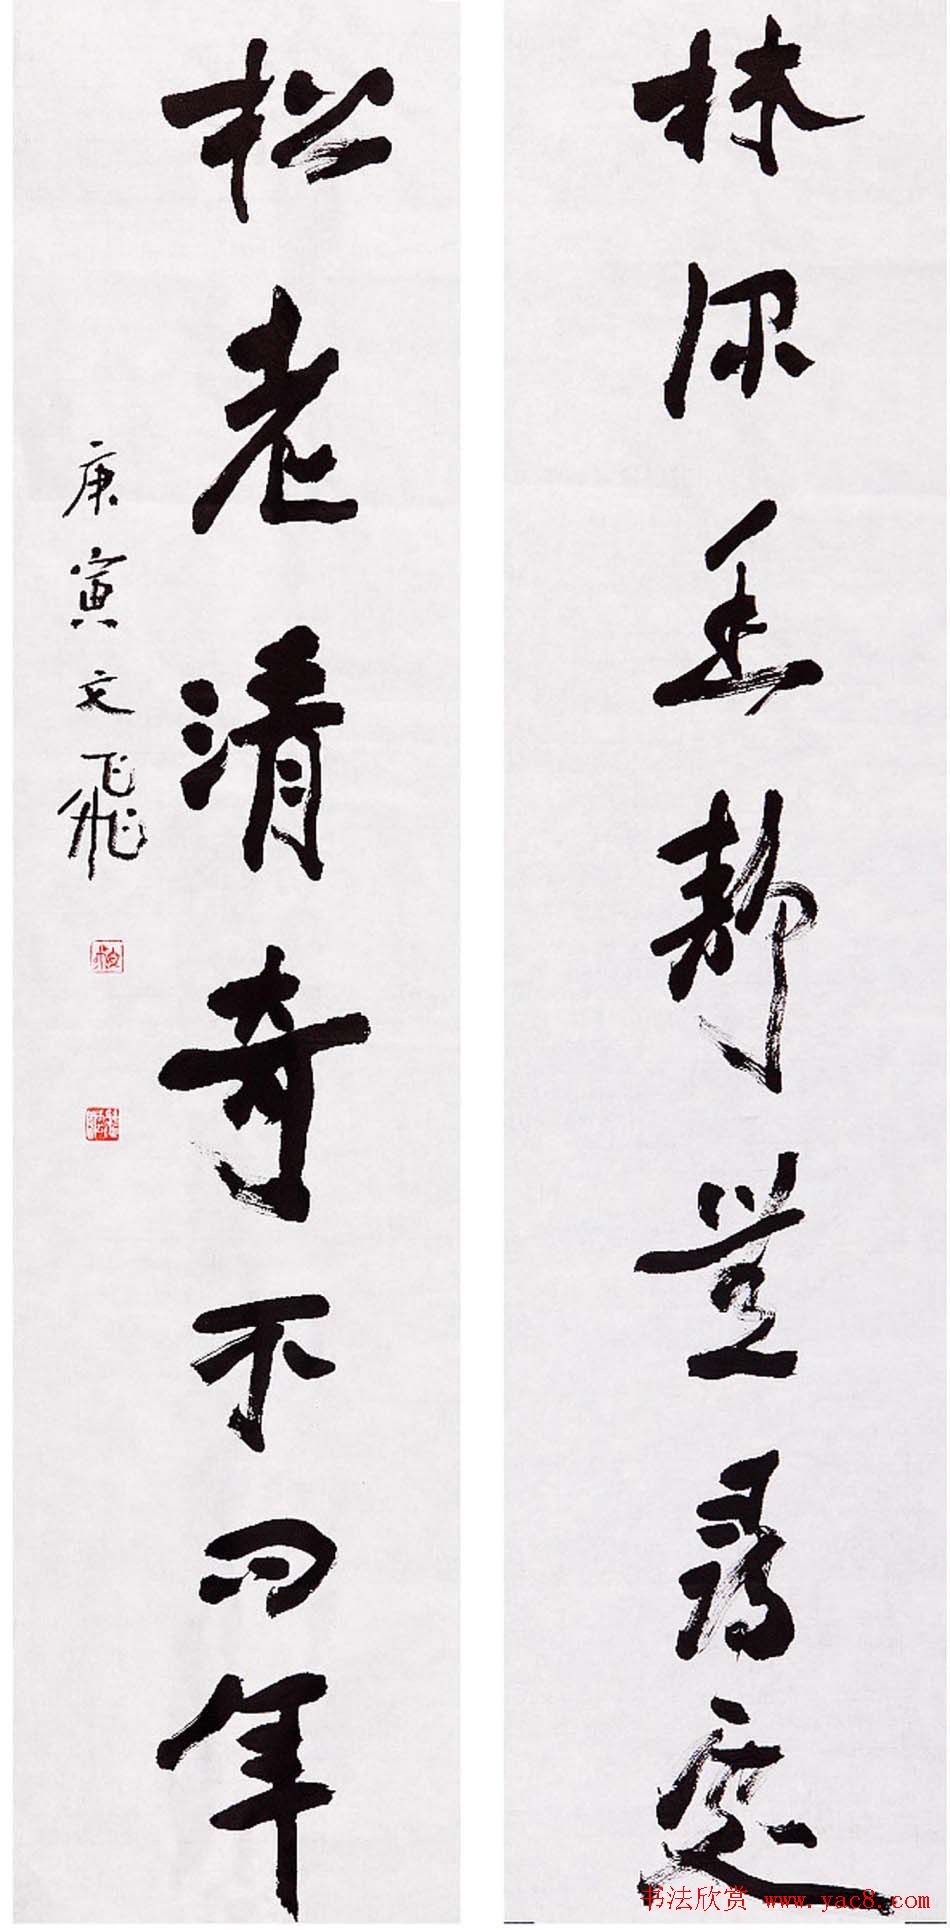 林深垂静岂寻处
松老清奇不问年
庚寅文飞
书法欣赏 www.yac8.com